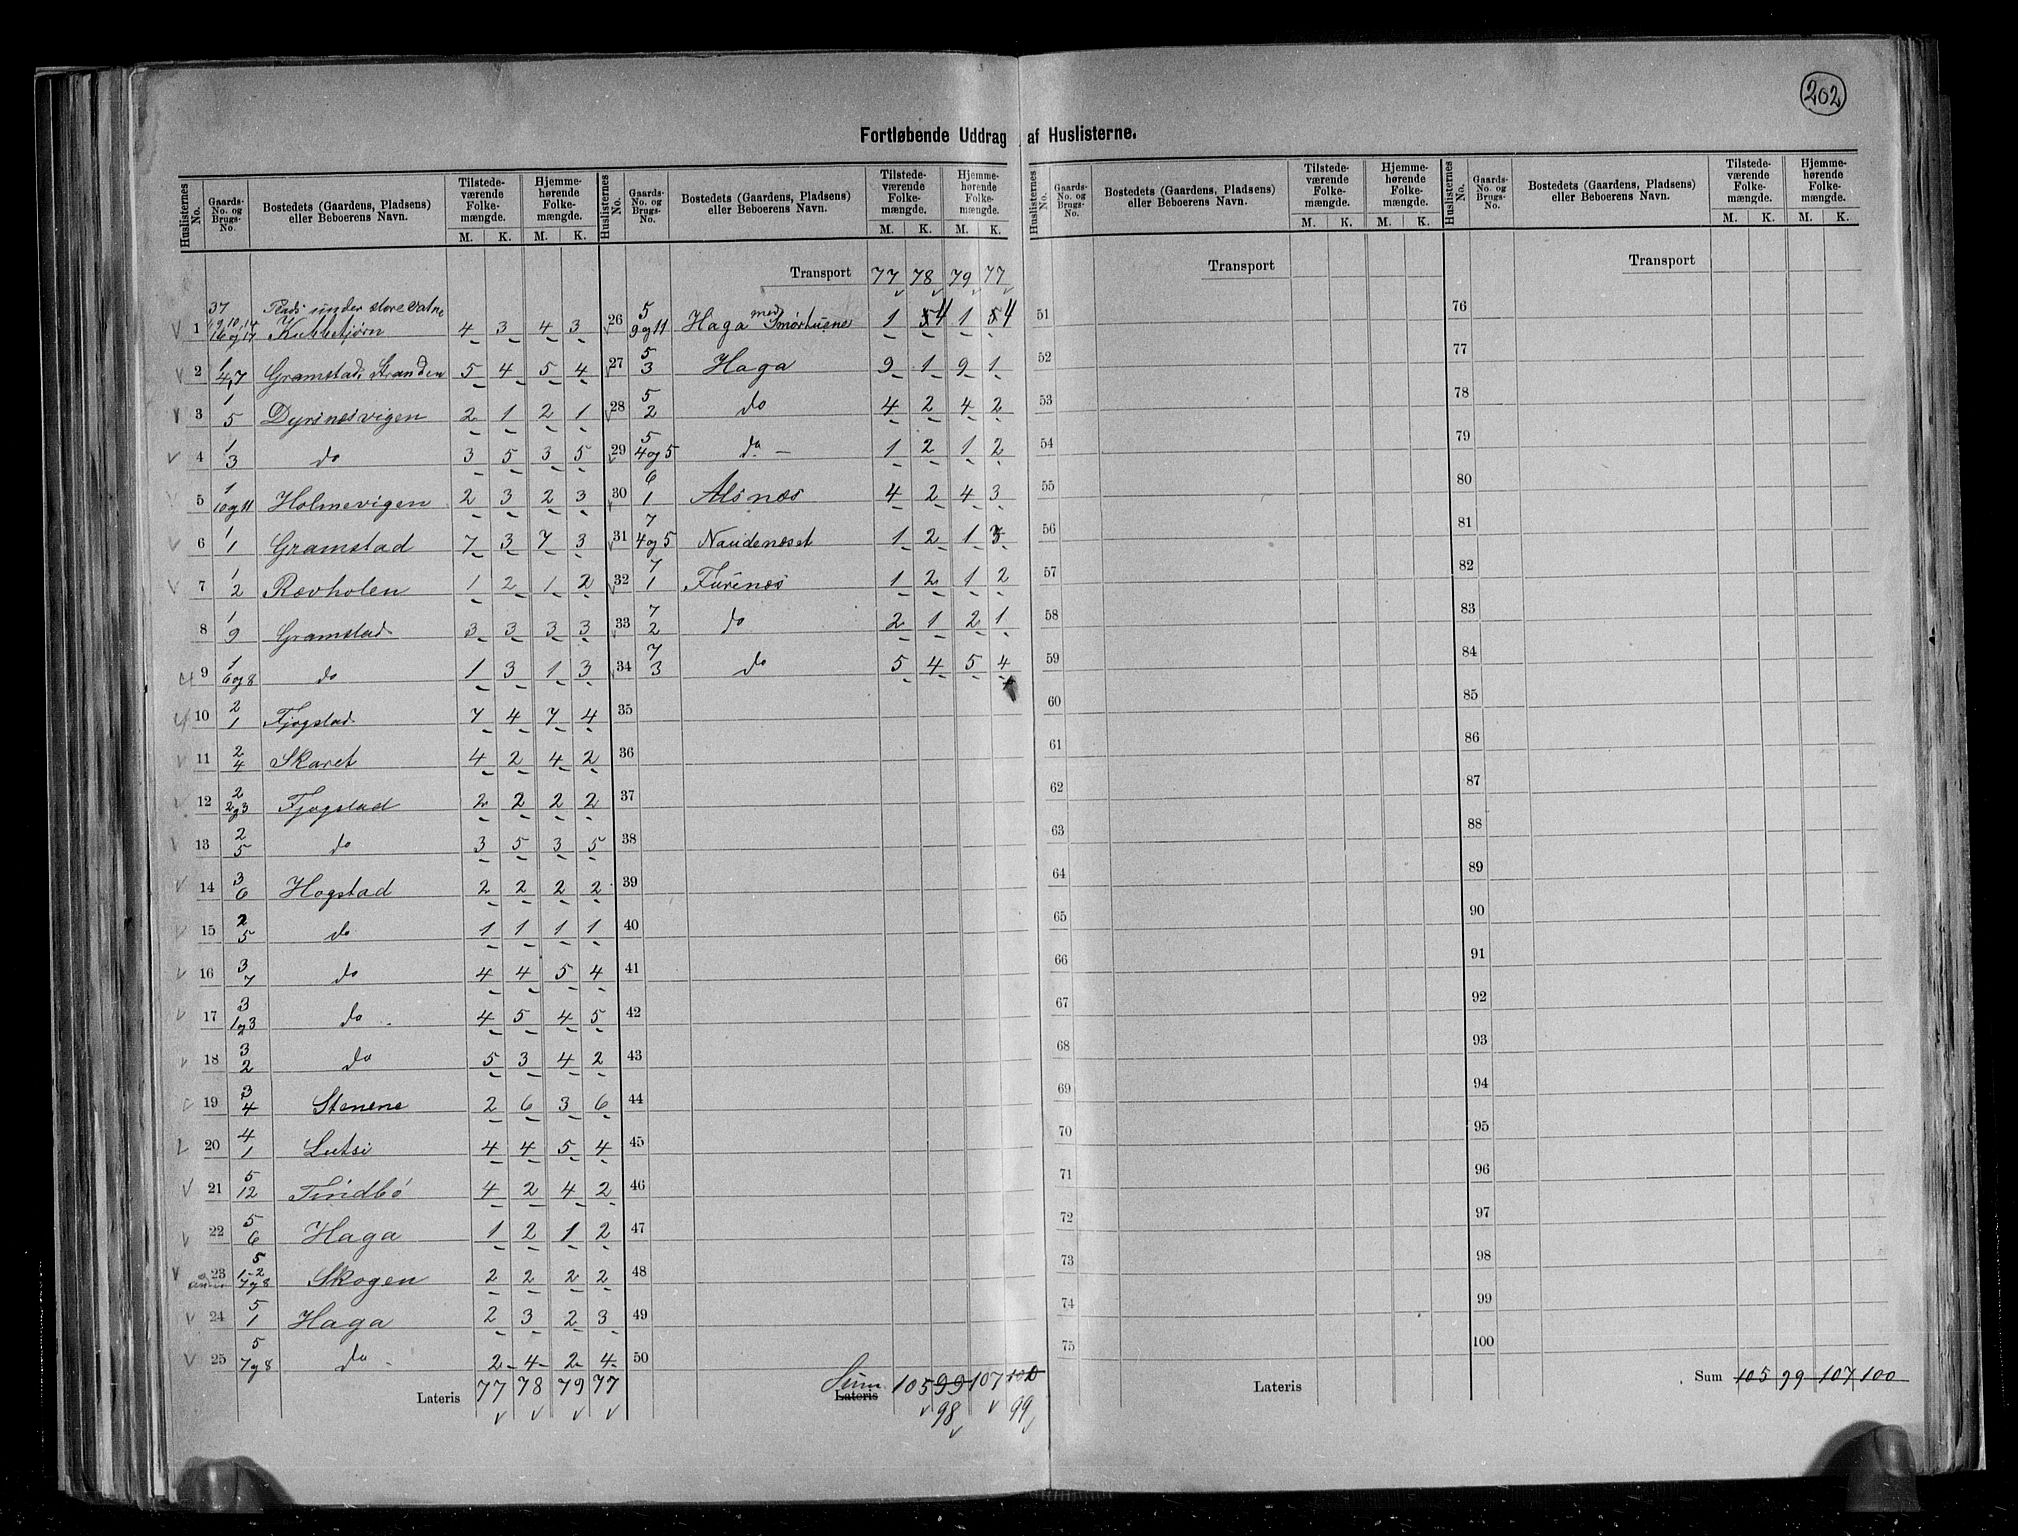 202
Fortløbende Uddrag af Huslisterne.
Huslisternes No. | Gaards-No. og Brugs-No. | Bostedets (Gaardens, Pladsens) eller Beboerens Navn. | Tilstedeværende Folkemængde. M. K. | Hjemmehørende Folkemængde. M. K.
1 | 37 / 9, 10, 14 16 og 17 | Plads under store Vatne Kubbetjørn | 4 | 3 | 4 | 3
2 | 1 / 4,7 | Gramstad, Stranden | 5 | 4 | 5 | 4
3 | 1 / 5 | Dyrsnesvigen | 2 | 1 | 2 | 1
4 | 1 / 3 | do | 3 | 5 | 3 | 5
5 | 1 / 10 og 11 | Holmevigen | 2 | 3 | 2 | 3
6 | 1 / 1 | Gramstad | 7 | 3 | 7 | 3
7 | 1 / 2 | Rævholen | 1 | 2 | 1 | 2
8 | 1 / 9 | Gramstad | 3 | 3 | 3 | 3
9 | 1 / 6 og 8 | do | 1 | 3 | 1 | 3
10 | 2 / 1 | Fjogstad | 7 | 4 | 7 | 4
11 | 2 / 4 | Skaret | 4 | 2 | 4 | 2
12 | 2 / 2 og 3 | Fjogstad | 2 | 2 | 2 | 2
13 | 2 / 5 | do | 3 | 5 | 3 | 5
14 | 3 / 6 | Hogstad | 2 | 2 | 2 | 2
15 | 2 / 5 | do | 1 | 1 | 1 | 1
16 | 3 / 7 | do | 4 | 4 | 5 | 4
17 | 3 / 1 og 3 | do | 4 | 5 | 4 | 5
18 | 3 / 2 | do | 5 | 3 | 4 | 2
19 | 3 / 4 | Stenene | 2 | 6 | 3 | 6
20 | 4 / 1 | Lutsi | 4 | 4 | 5 | 4
21 | 5 / 12 | Tindbø | 4 | 2 | 4 | 2
22 | 5 / 6 | Haga | 1 | 2 | 1 | 2
23 | 5 / 1-2 7 og 8 | Skogen | 2 | 2 | 2 | 2
24 | 5 / 1 | Haga | 2 | 3 | 2 | 3
25 | 5 / 7 og 8 | do | 2 | 4 | 2 | 4
Lateris | 77 | 78 | 79 | 77
Huslisternes No. | Gaards-No. og Brugs-No. | Bostedets (Gaardens, Pladsens) eller Beboerens Navn. | Tilstedeværende Folkemængde. M. K. | Hjemmehørende Folkemængde. M. K.
Transport | 77 | 78 | 79 | 77
26 | 5 / 9 og 11 | Haga med Smørtuene | 1 | 5 4 | 1 | 5 4
27 | 5 / 3 | Haga | 9 | 1 | 9 | 1
28 | 5 / 2 | do | 4 | 2 | 4 | 2
29 | 5 / 4 og 5 | do | 1 | 2 | 1 | 2
30 | 6 / 1 | Alsnæs | 4 | 2 | 4 | 3
31 | 7 / 4 og 5 | Naudenæset | 1 | 2 | 1 | 3
32 | 7 / 1 | Furenæs | 1 | 2 | 1 | 2
33 | 7 / 2 | do | 2 | 1 | 2 | 1
34 | 7 / 3 | do | 5 | 4 | 5 | 4
35
36
37
38
39
40
41
42
43
44
45
46
47
48
49
50
Sum Lateris | 105 | 99 | 107 | 100
98 | 99
Huslisternes No. | Gaards-No. og Brugs-No. | Bostedets (Gaardens, Pladsens) eller Beboerens Navn. | Tilstedeværende Folkemængde. M. K. | Hjemmehørende Folkemængde. M. K.
Transport
51
52
53
54
55
56
57
58
59
60
61
62
63
64
65
66
67
68
69
70
71
72
73
74
75
Lateris
Huslisternes No. | Gaards-No. og Brugs-No. | Bostedets (Gaardens, Pladsens) eller Beboerens Navn. | Tilstedeværende Folkemængde. M. K. | Hjemmehørende Folkemængde. M. K.
Transport
76
77
78
79
80
81
82
83
84
85
86
87
88
89
90
91
92
93
94
95
96
97
98
99
100
Sum | 105 | 99 | 107 | 100